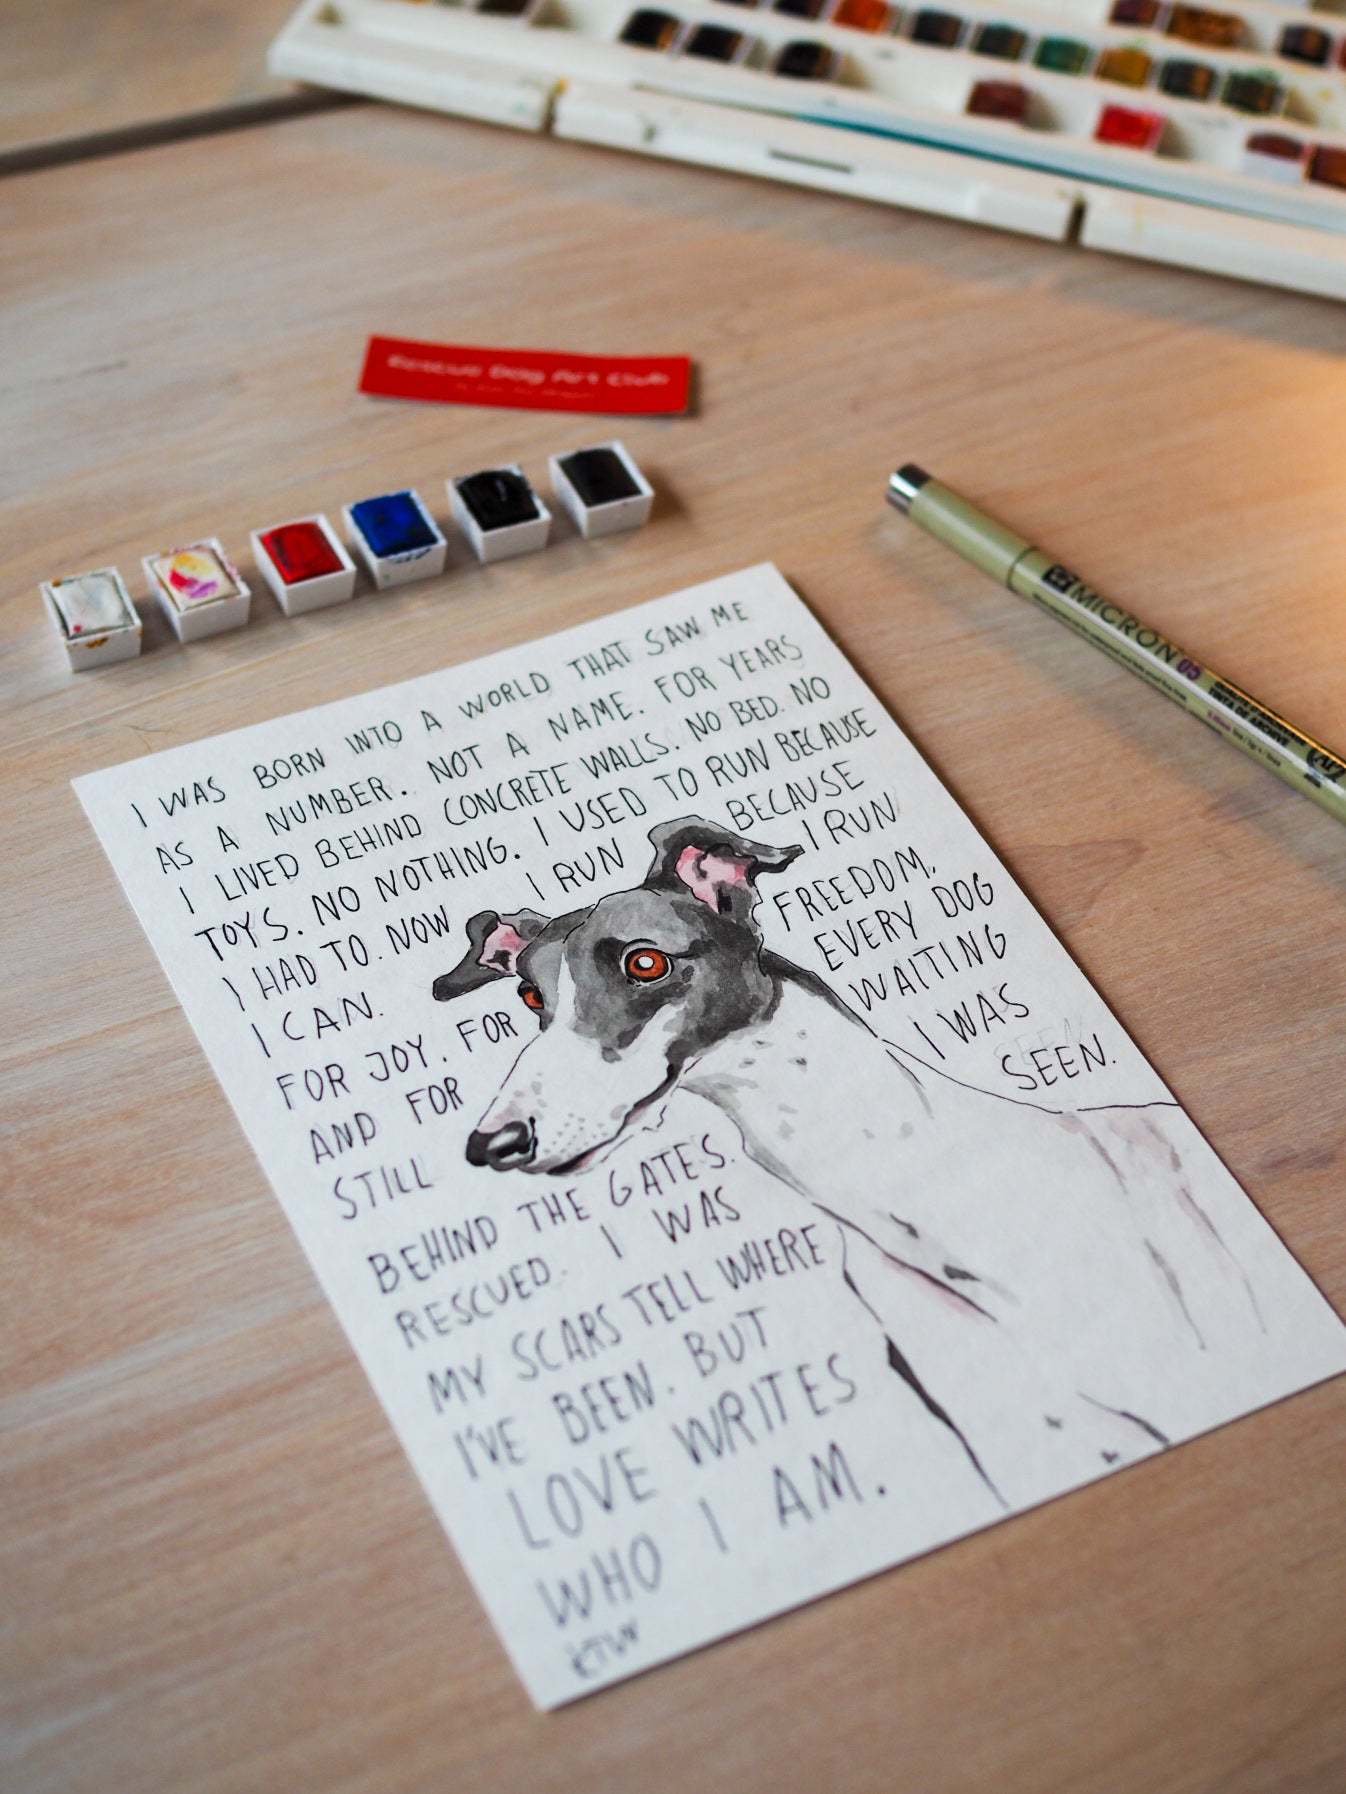 Rescue Dog Art Club
MICRON 05
I WAS BORN INTO A WORLD THAT SAW ME
AS A NUMBER. NOT A NAME. FOR YEARS
I LIVED BEHIND CONCRETE WALLS. NO BED. NO
TOYS. NO NOTHING. I USED TO RUN BECAUSE
I HAD TO. NOW I RUN BECAUSE
I CAN. I RUN
FOR JOY. FOR FREEDOM,
AND FOR EVERY DOG
STILL WAITING
BEHIND THE GATES. I WAS
RESCUED. I WAS SEEN.
MY SCARS TELL WHERE
I'VE BEEN. BUT
LOVE WRITES
WHO I AM.